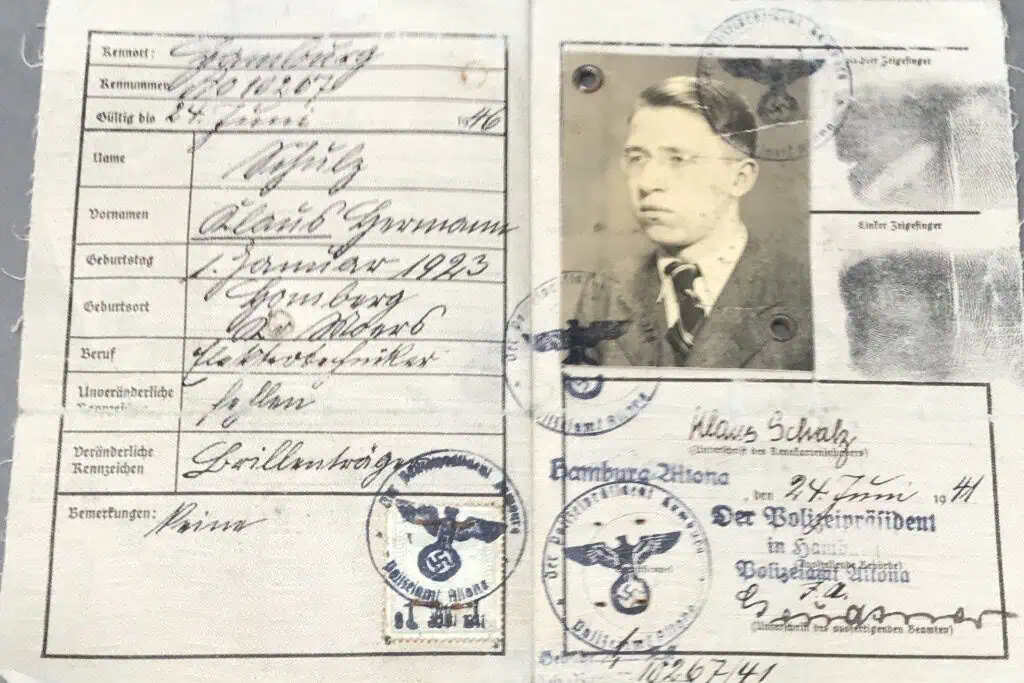 Kennort: Hamburg
Kennummer
Gültig bis 24. Juni 1946
Name Schulz
Vornamen Klaus Hermann
Geburtstag 1. Januar 1923
Geburtsort Homberg
Kr Moers
Beruf Elektrotechniker
Unveränderliche
Kennzeichen fehlen
Veränderliche
Kennzeichen Brillenträger
Bemerkungen: Keine
Der Polizeipräsident Hamburg
Polizeiamt Altona
Zeigefinger
Linker Zeigefinger
Klaus Schulz
(Unterschrift des Kennkarteninhabers)
Hamburg-Altona, den 24. Juni 1941
Der Polizeipräsident
in Hamb
Polizeiamt Altona
(Ausstellende Behörde)
I.A.
(Unterschrift des ausfertigenden Beamten)
Der Polizeipräsident Hamburg
Polizeiamt Altona
10267/41